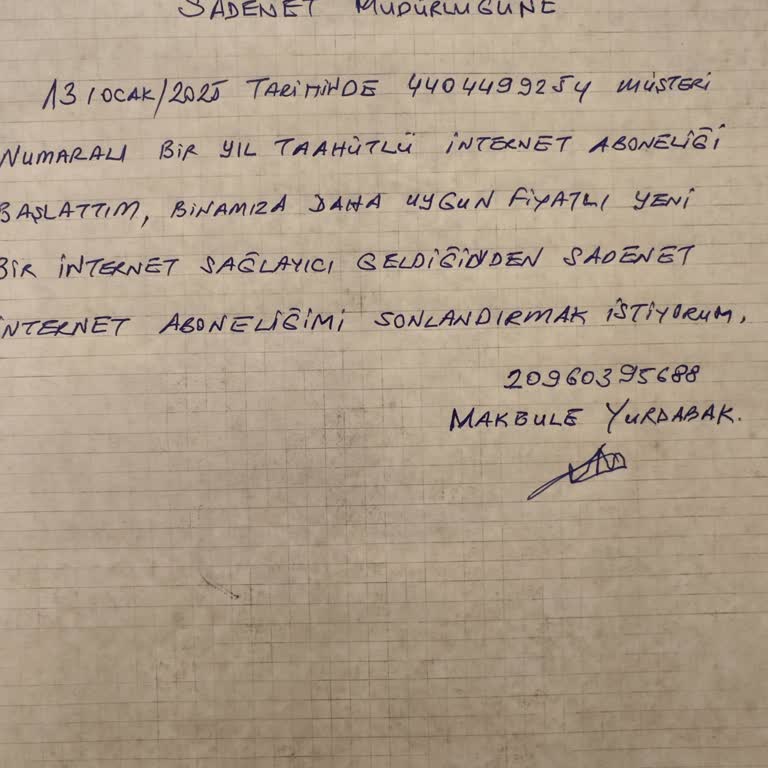 SADENET MÜDÜRLÜĞÜNE
13/OCAK/2025 TARİHİNDE 4404499254 MÜŞTERİ
NUMARALI BİR YIL TAAHÜTLÜ İNTERNET ABONELİĞİ
BAŞLATTIM, BİNAMIZA DAHA UYGUN FİYATLI YENİ
BİR İNTERNET SAĞLAYICI GELDİĞİNDEN SADENET
İNTERNET ABONELİĞİMİ SONLANDIRMAK İSTİYORUM.
20960395688
MAKBULE YURDABAK.